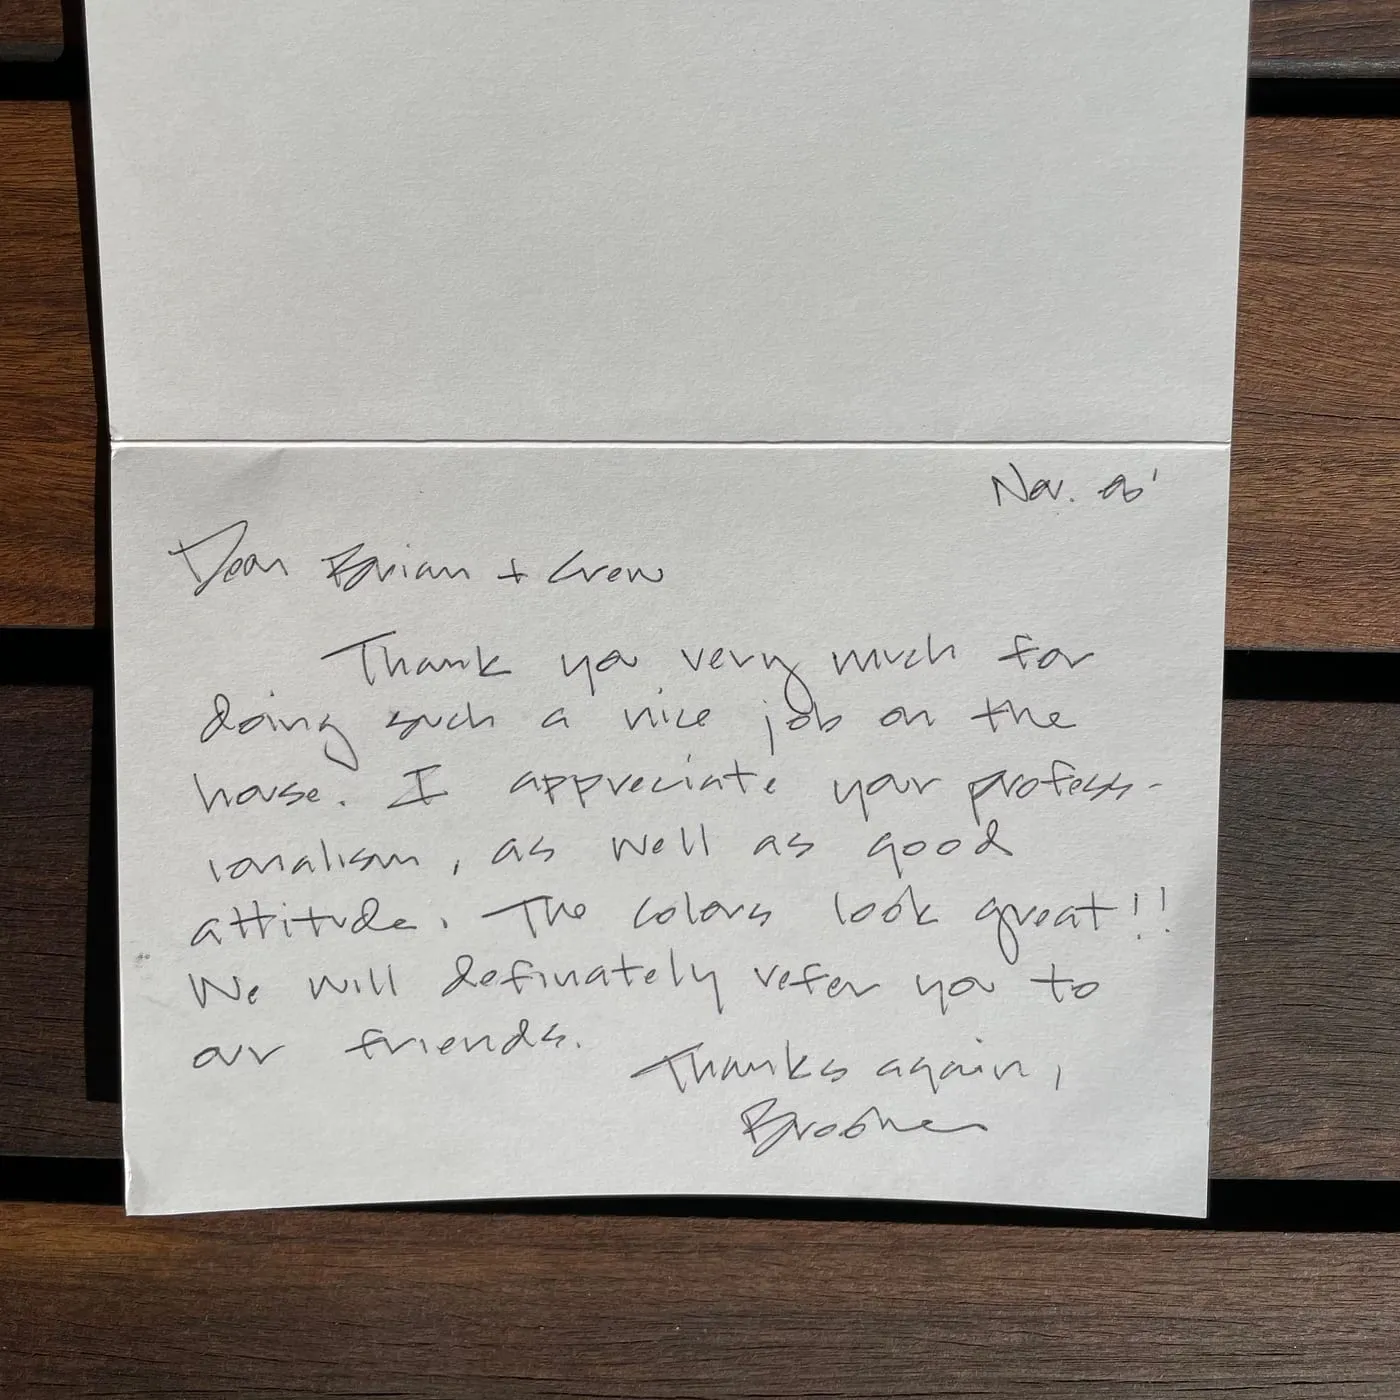 Nov.
Dear Brian + Crew
Thank you very much for
doing such a nice job on the
house. I appreciate your profess-
ionalism, as well as good
attitude. The colors look great!!
We will definately refer you to
our friends.
Thanks again,